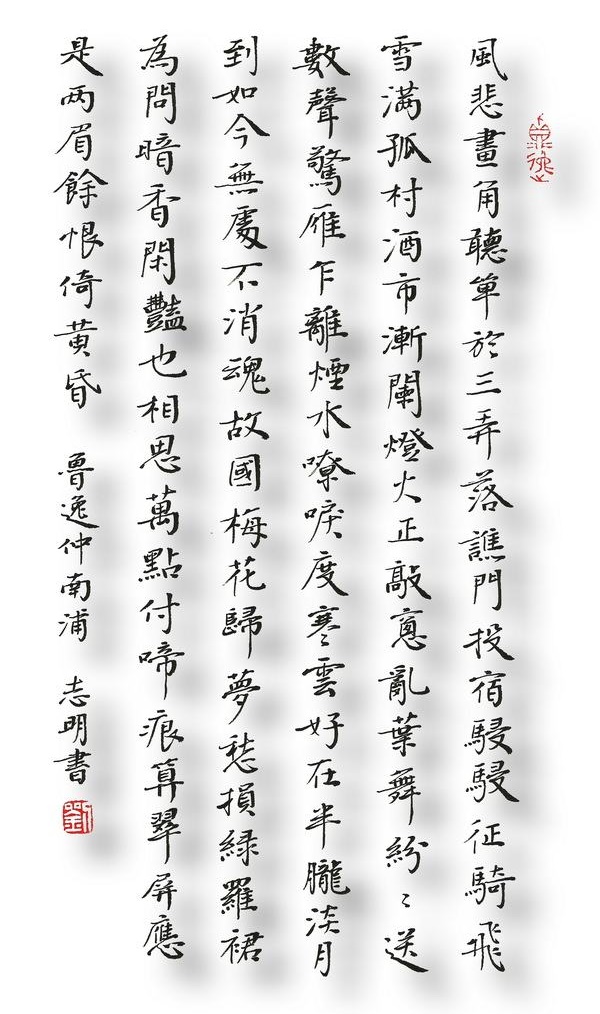 風悲畫角聽單於三弄落譙門投宿駸駸征騎飛
雪滿孤村酒市漸闌燈火正敲窓亂葉舞紛〻送
數聲驚雁乍離煙水嘹唳度寒雲好在半朧淡月
到如今無處不消魂故國梅花歸夢愁損綠羅裙
為問暗香閑豔也相思萬點付啼痕算翠屏應
是两眉餘恨倚黃昏 魯逸仲南浦 志明書
劉